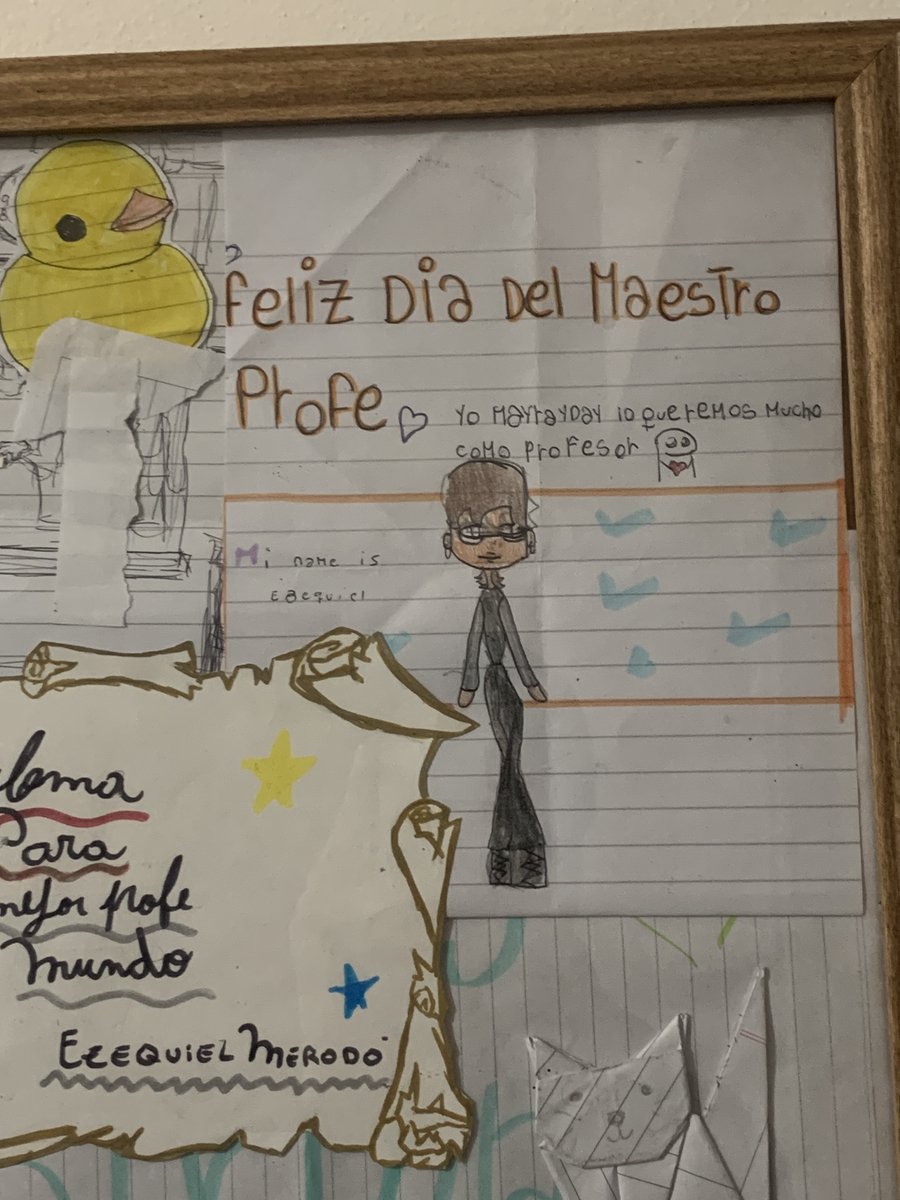 Feliz Dia Del Maestro
Profe
yo Mayrayday lo queremos Mucho
como profesor
Mi name is
Ezequiel
Para
mejor profe
Mundo
Ezequiel Merodo